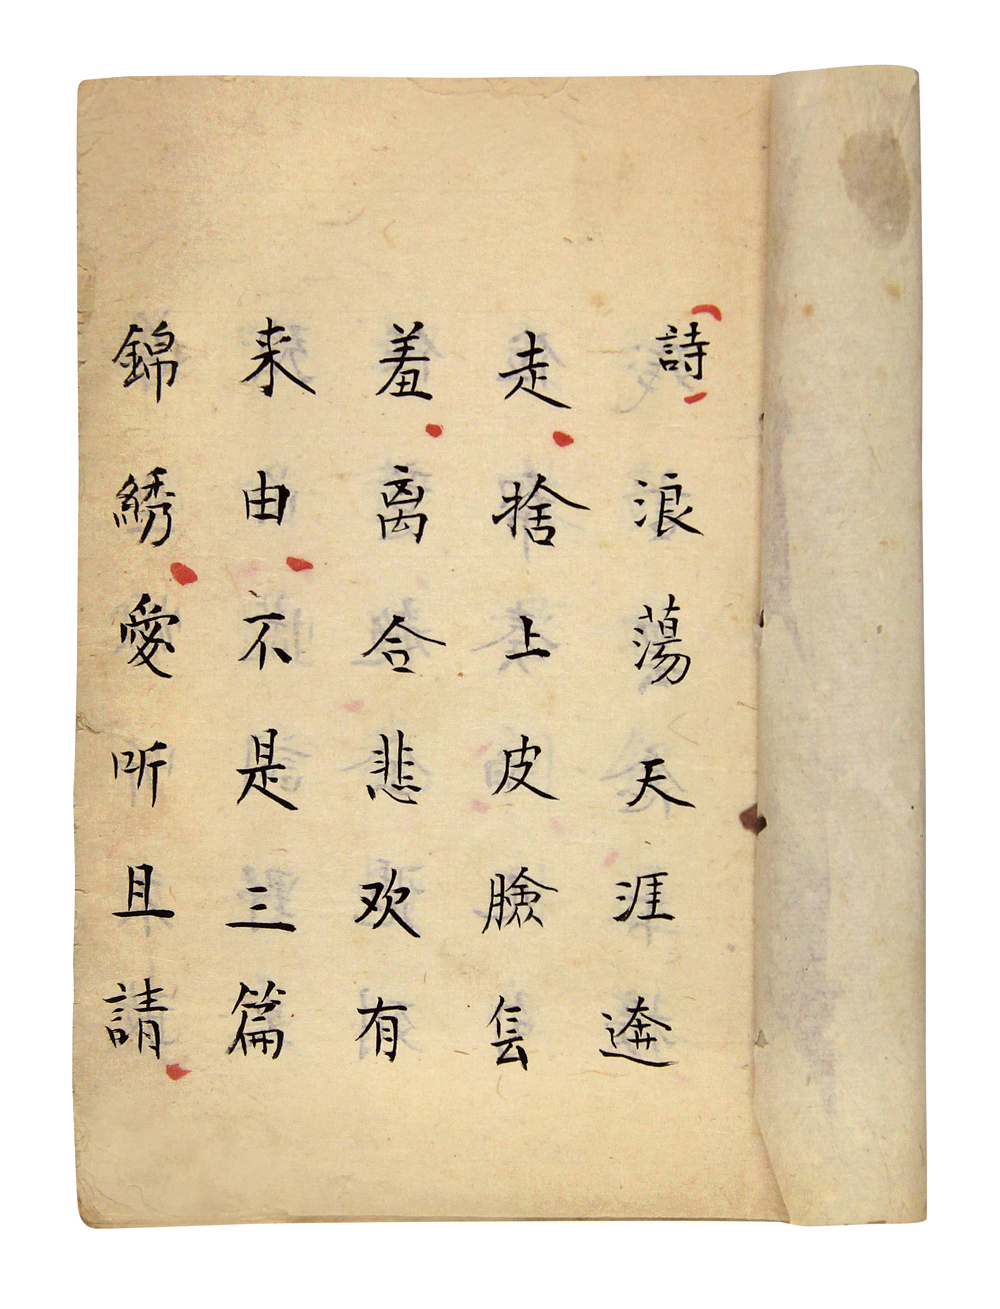 詩
浪蕩天涯逩
走捨上皮臉
羞离合悲欢有
来由不是三篇
錦綉愛听且請